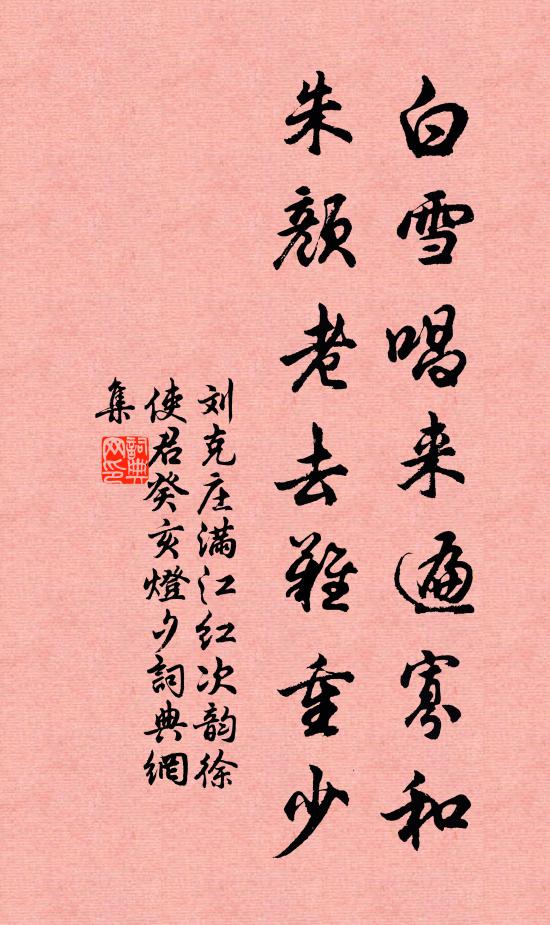 白雪唱来遍寡和
朱颜老去难重少
刘克庄满江红次韵徐
使君癸亥燈夕詞典網
集
詞典網印